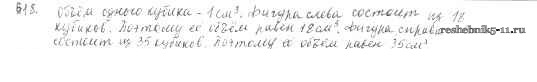 618. Объём одного кубика - 1 см³. Фигура слева состоит из 18
кубиков. Поэтому её объём равен 18 см³. Фигура справа
состоит из 35 кубиков. Поэтому её объём равен 35 см³
reshebnik5-11.ru